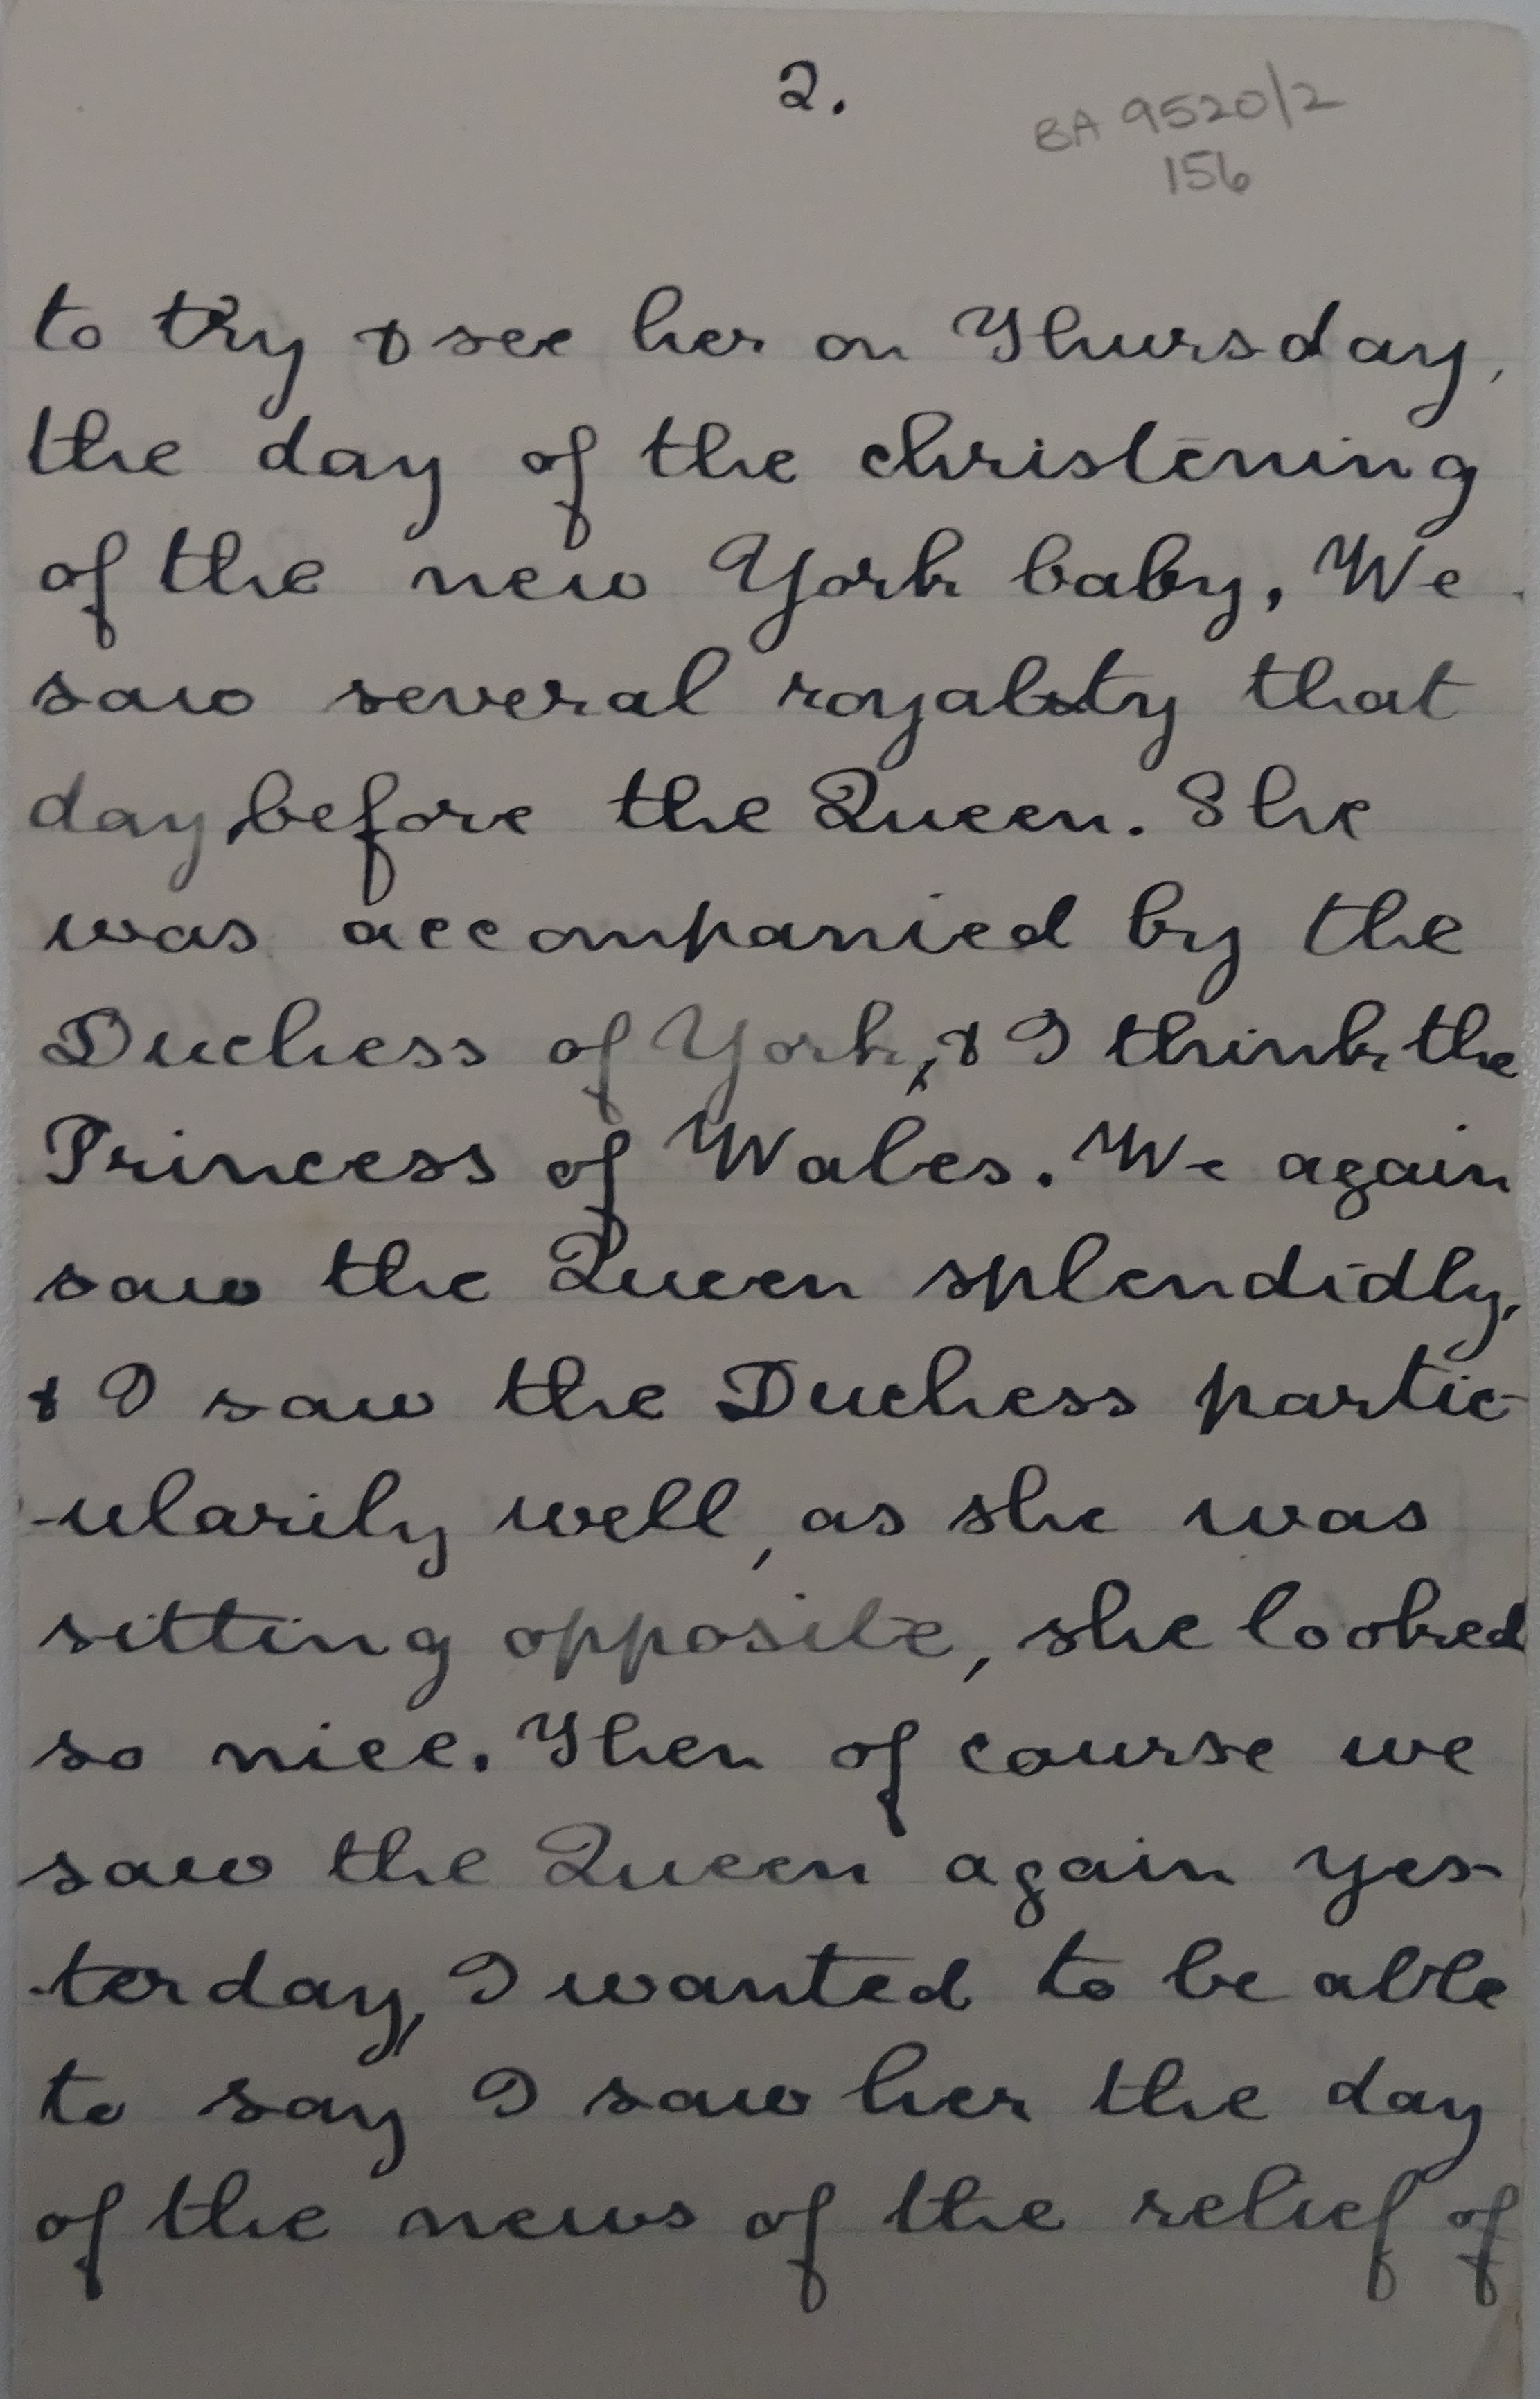 2.
BA 9520/2
156
to try & see her on Thursday,
the day of the christening
of the new York baby. We
saw several royalty that
day, before the Queen. She
was accompanied by the
Duchess of York, & I think the
Princess of Wales. We again
saw the Queen splendidly,
& I saw the Duchess partic-
-ularily well, as she was
sitting opposite, she looked
so nice. Then of course we
saw the Queen again yes-
-terday, I wanted to be able
to say I saw her the day
of the news of the relief of